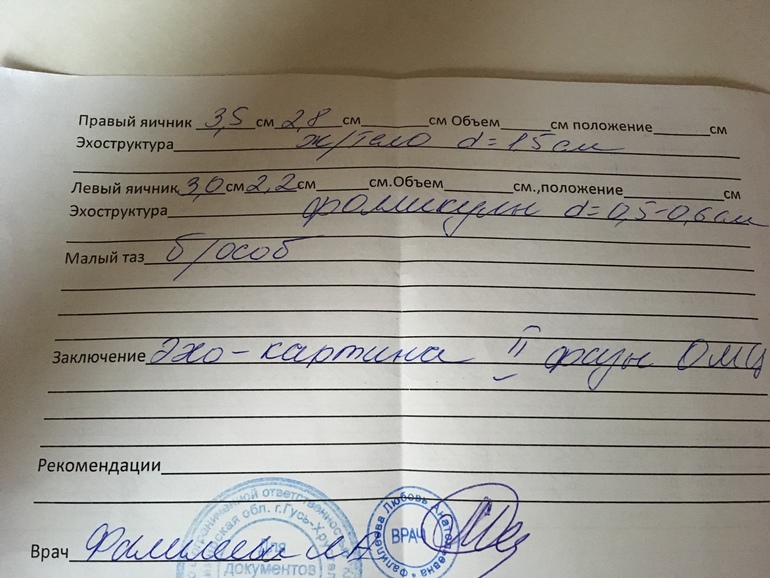 Правый яичник 3,5 см 2,8 см см Объем см положение см
Эхоструктура ж/тело d=15 см
Левый яичник 3,0 см 2,2 см см.Объем см.,положение см
Эхоструктура фолликулы d=0,5-0,6 см
Малый таз б/особ
Заключение эхо-картина II фазы ОМЦ
Рекомендации
Врач
ограниченной ответственностью
обл. г.Гусь-Хру
Для
документов
Фалилеева Любовь Анатольевна
ВРАЧ